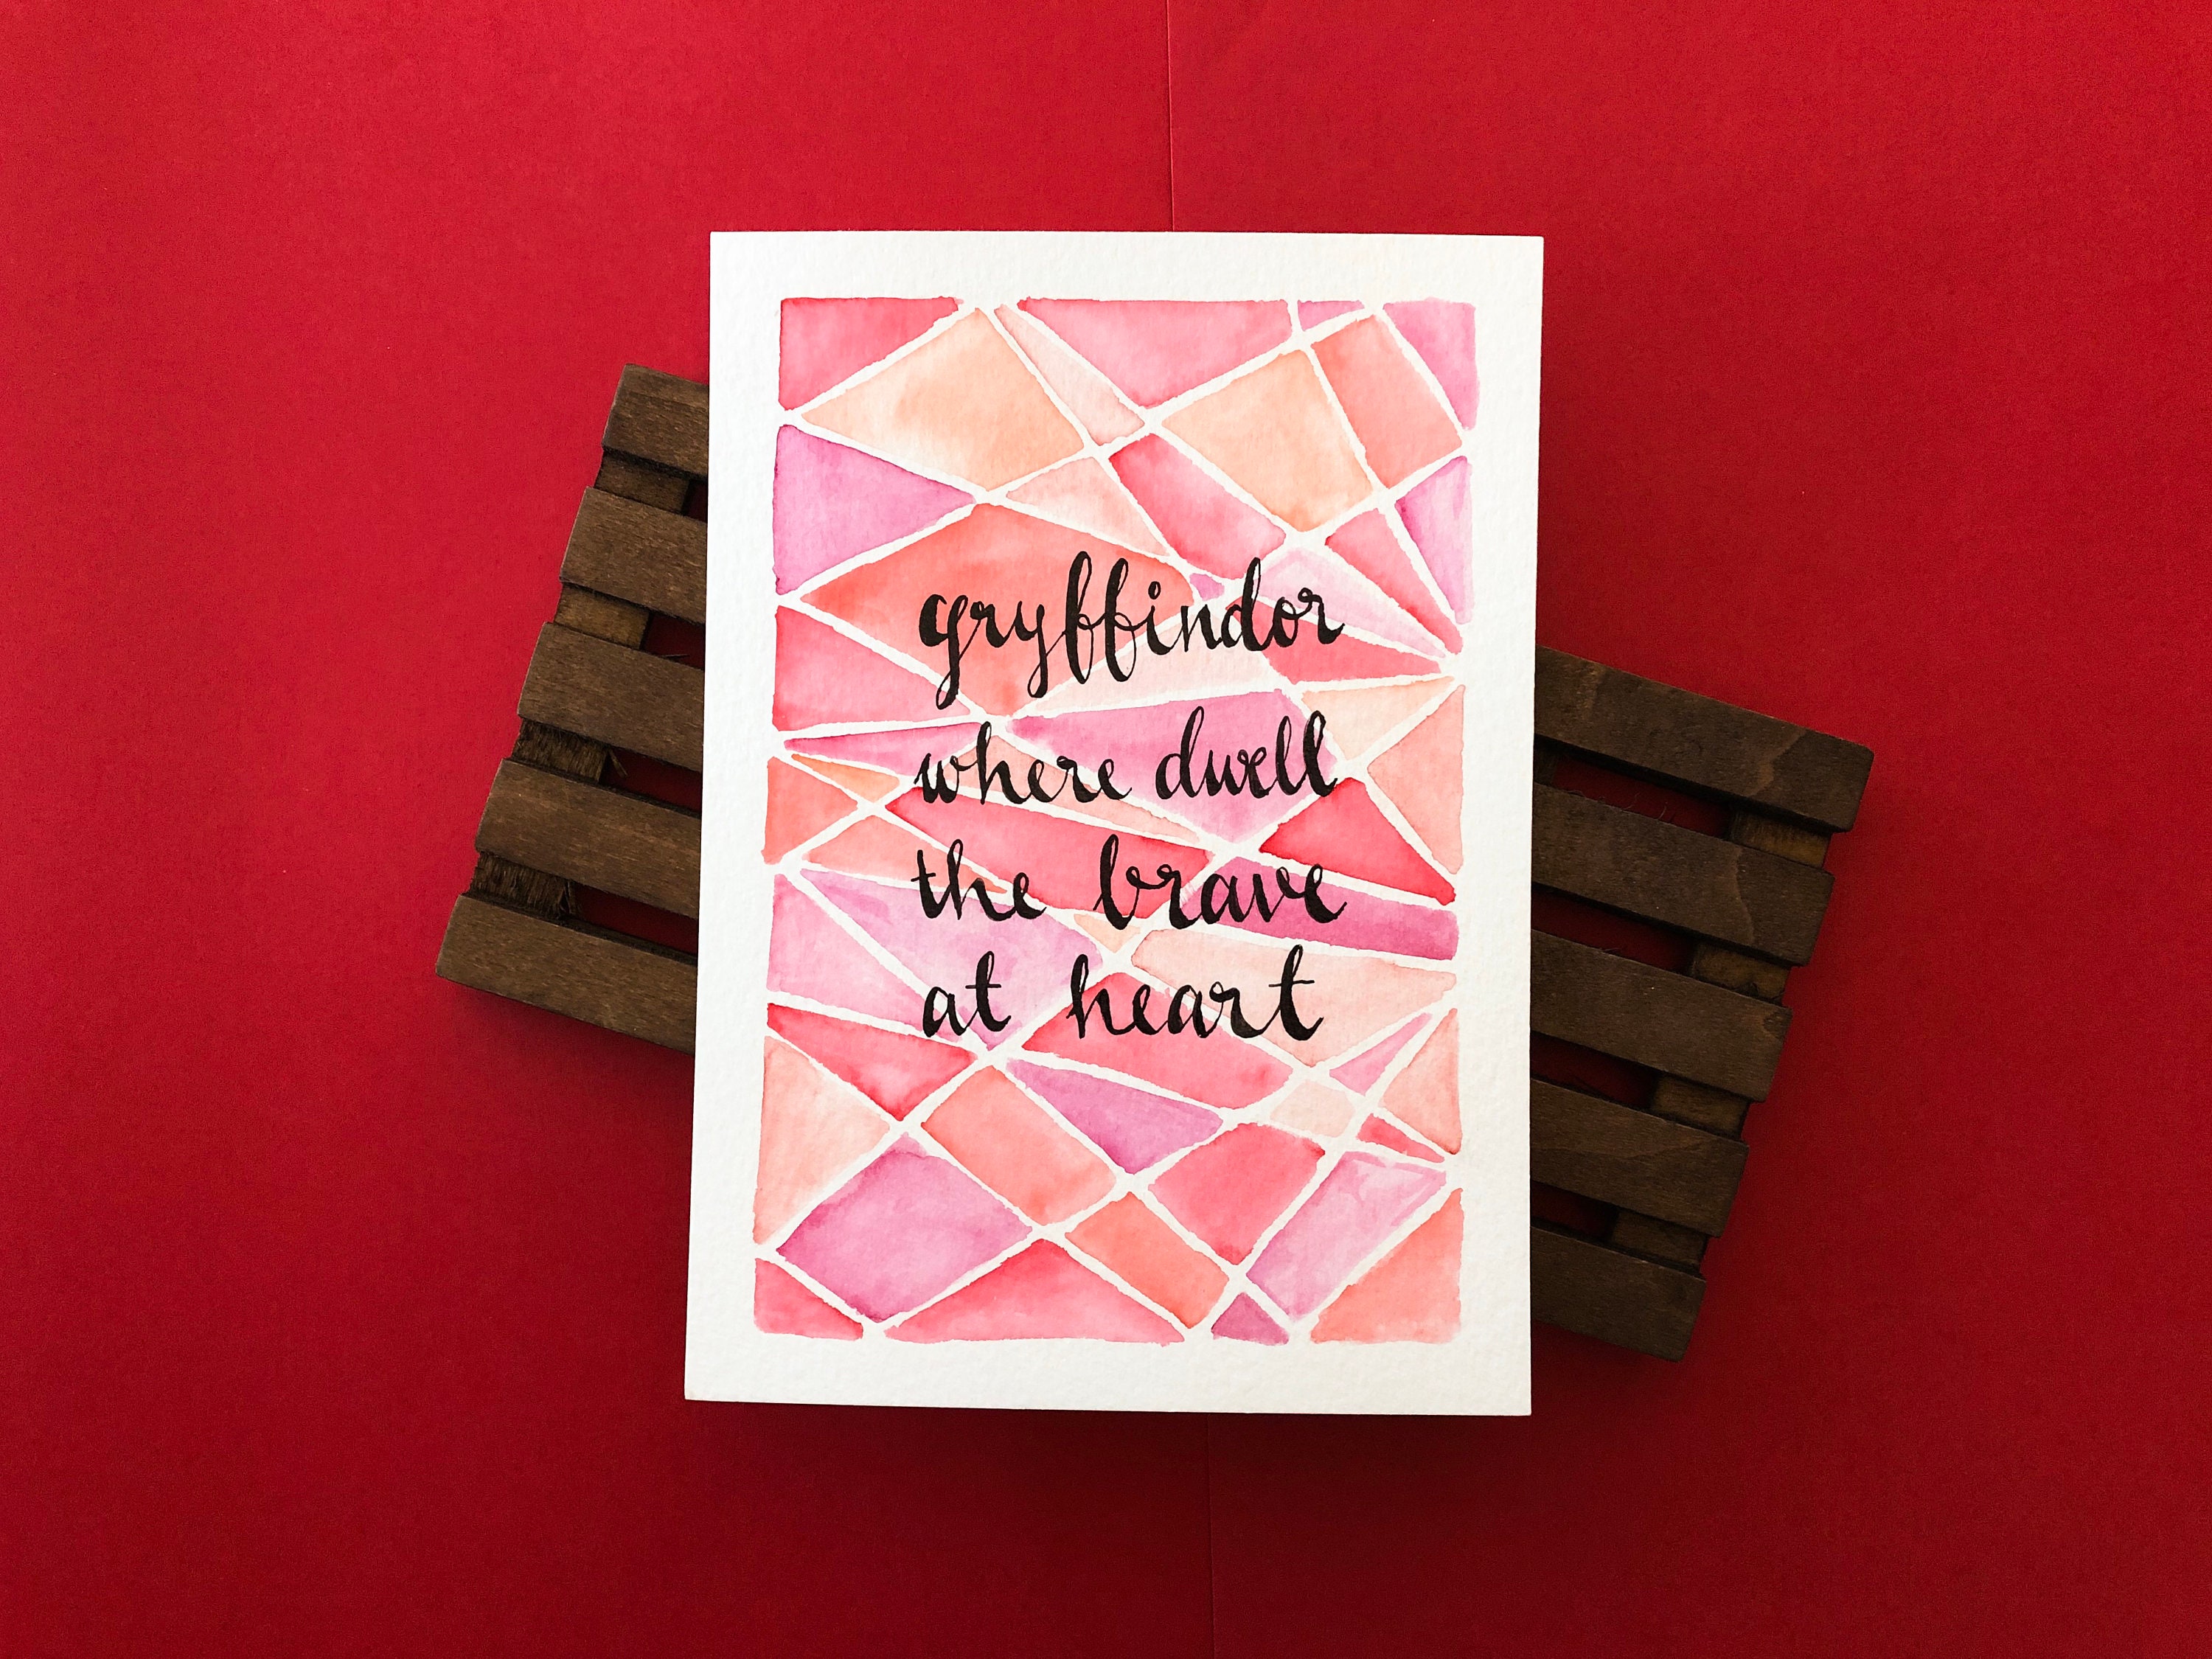 gryffindor
where dwell
the brave
at heart